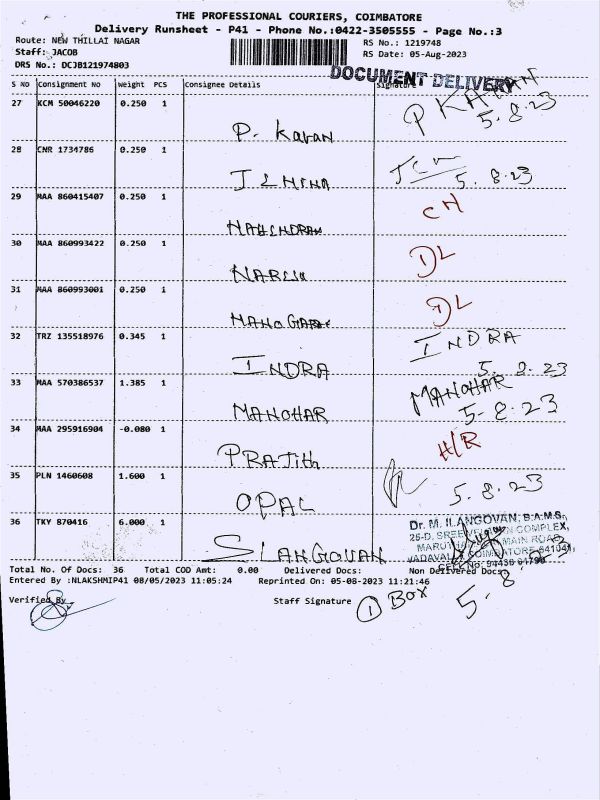 THE PROFESSIONAL COURIERS, COIMBATORE
Delivery Runsheet - P41 - Phone No.:0422-3505555 - Page No.:3
Route: NEW THILLAI NAGAR
RS No.: 1219748
Staff: JACOB
RS Date: 05-Aug-2023
DRS No.: DCJB121974803
DOCUMENT DELIVERY
S NO Consignment NO Weight PCS Consignee Details Signature
27 KCM 50046220 0.250 1 P. Karan P KARAN 5.8.23
28 CNR 1734786 0.250 1 5.8.23
29 MAA 860415407 0.250 1 CH
30 MAA 860993422 0.250 1 DL
31 MAA 860993001 0.250 1 DL
32 TRZ 135518976 0.345 1 INDRA INDRA 5.8.23
33 MAA 570386537 1.385 1 MANOHAR MANOHAR 5.8.23
34 MAA 295916904 -0.080 1 PRAJith H/R
35 PLN 1460608 1.600 1 OPAL 5.8.23
36 TKY 870416 6.000 1 SLANGOVAN
Dr. M. ILANGOVAN, B.A.M.S.,
MAIN ROAD,
COIMBATORE 641041,
Total No. Of Docs: 36 Total COD Amt: 0.00 Delivered Docs: Non Delivered Docs:
Entered By :NLAKSHMIP41 08/05/2023 11:05:24 Reprinted On: 05-08-2023 11:21:46
Verified By Staff Signature 1 Box 5.8